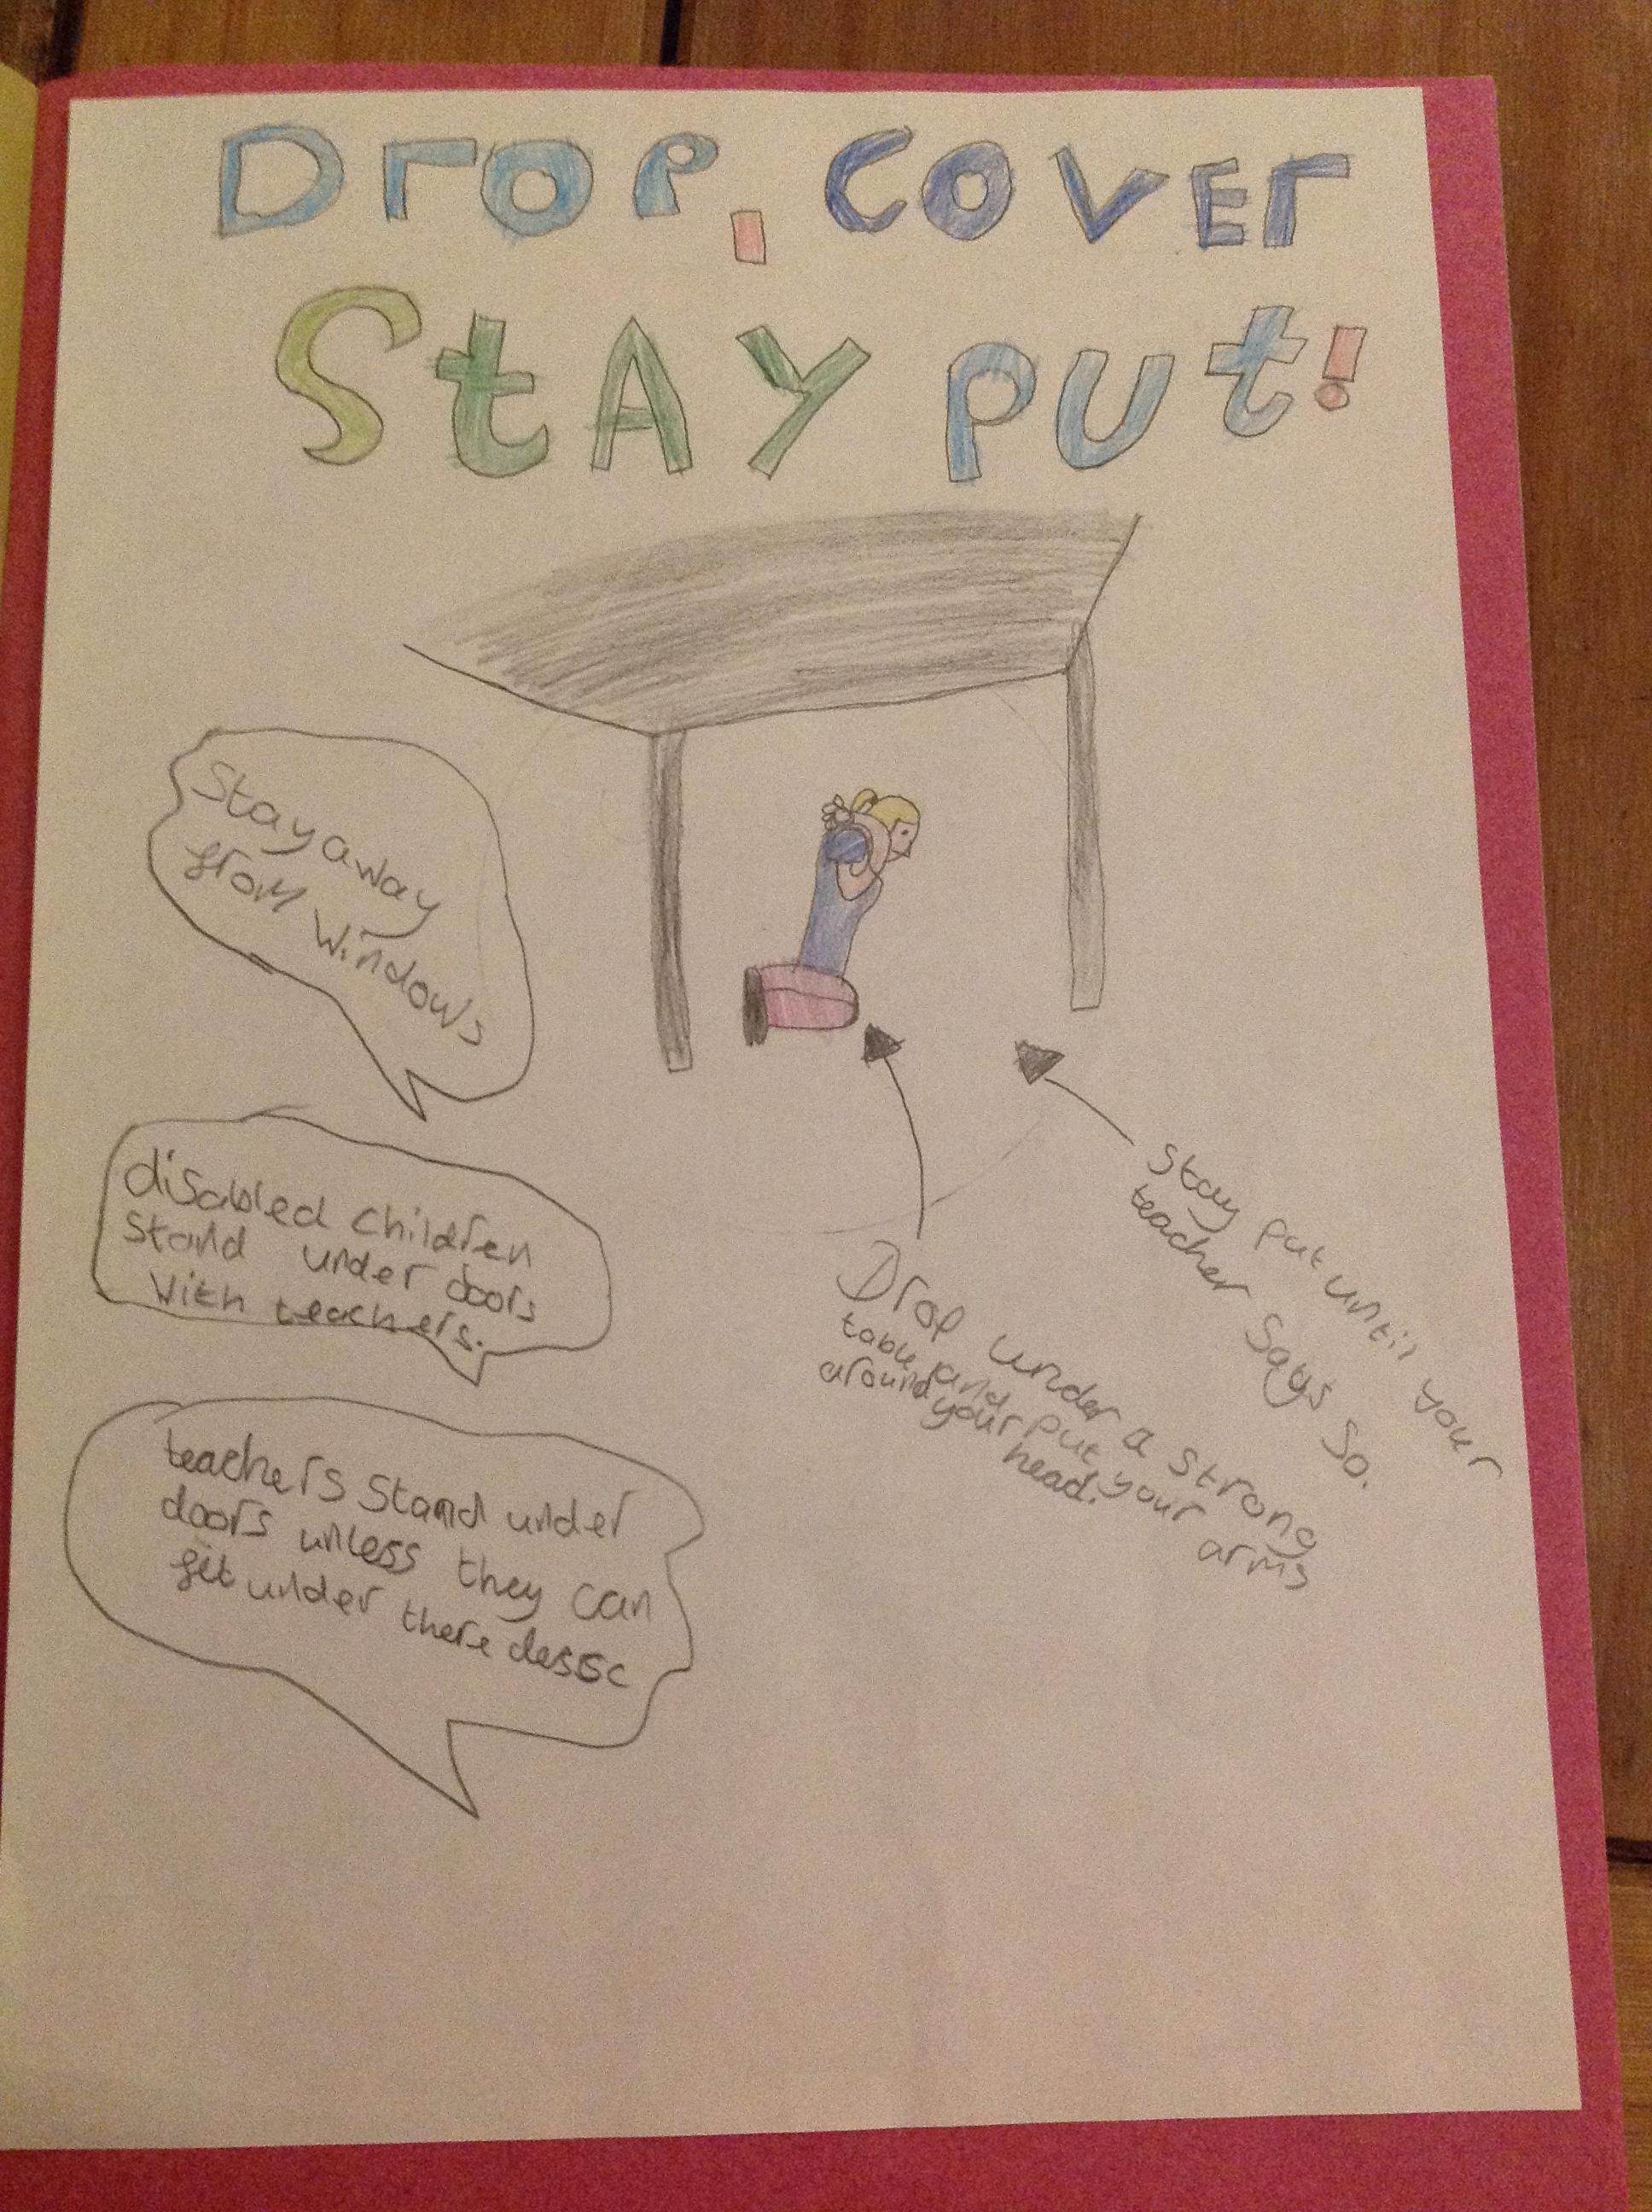 Drop, cover
Stay put!
Stay away
from windows
disabled children
stand under doors
with teachers.
teachers stand under
doors unless they can
fit under there dessc
Stay put until your
teacher says so.
Drop under a strong
table and put your arms
around your head.